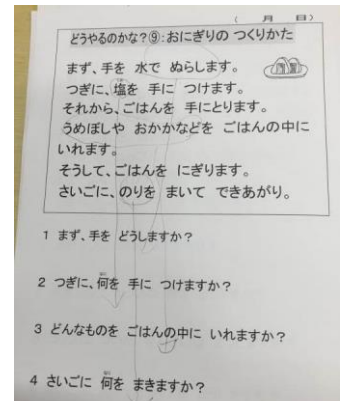 (　月　日)
どうやるのかな?⑨:おにぎりの つくりかた
まず、手を 水で ぬらします。
つぎに、塩を 手に つけます。
それから、ごはんを 手にとります。
うめぼしや おかかなどを ごはんの中に
いれます。
そうして、ごはんを にぎります。
さいごに、のりを まいて できあがり。
1 まず、手を どうしますか?
2 つぎに、何を 手に つけますか?
3 どんなものを ごはんの中に いれますか?
4 さいごに 何を まきますか?